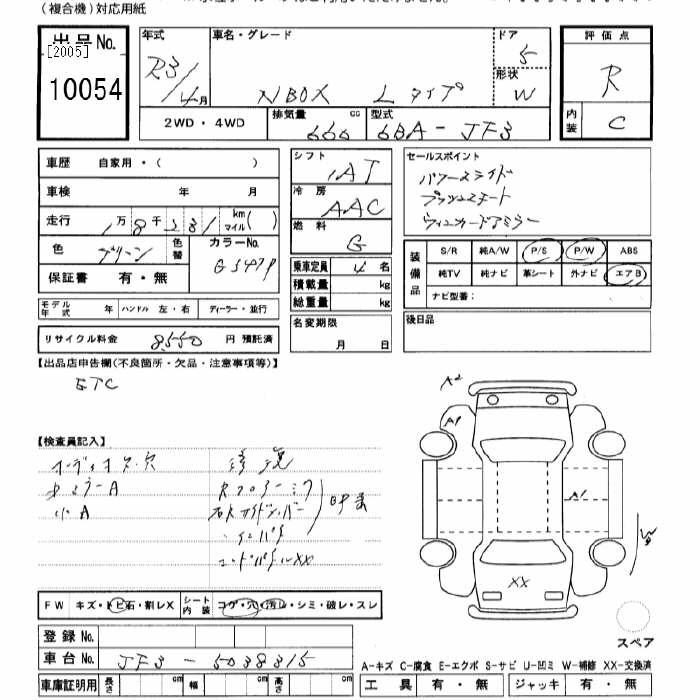 (複合機)対応用紙
出品No.
[2005]
10054
年式
R3/4月
車名・グレード
NBOX Lタイプ
ドア
5
形状
W
評価点
R
内装
C
2WD・4WD
排気量
660 cc
型式
6BA-JF3
車歴 自家用・( )
車検 年 月
走行 1万8千231 km マイル( )
色 グリーン 色替
カラーNo.
保証書 有・無
シフト
AT
冷房
AAC
燃料
G
乗車定員 4名
積載量 kg
総重量 kg
セールスポイント
パワースライド
プッシュスタート
ウィンカードアミラー
装備品
S/R 純A/W P/S P/W ABS
純TV 純ナビ 革シート 外ナビ エアB
ナビ型番:
モデル年式 年 ハンドル 左・右 ディーラー・並行
リサイクル料金 8,550 円 預託済
名変期限
月 日
後日品
【出品店申告欄(不良箇所・欠品・注意事項等)】
ETC
【検査員記入】
オーディオ欠・穴
小A
修復
コ・ドパネルXX
A2
A1
A1
XX
FW キズ・トビ石・割レX シート内装 コゲ・穴・汚レ・シミ・破レ・スレ
登録No.
車台No. JF3-5038315
車庫証明用 長さ cm 幅 cm 高さ cm
スペア
A-キズ C-腐食 E-エクボ S-サビ U-凹ミ W-補修 XX-交換済
工具 有・無 ジャッキ 有・無